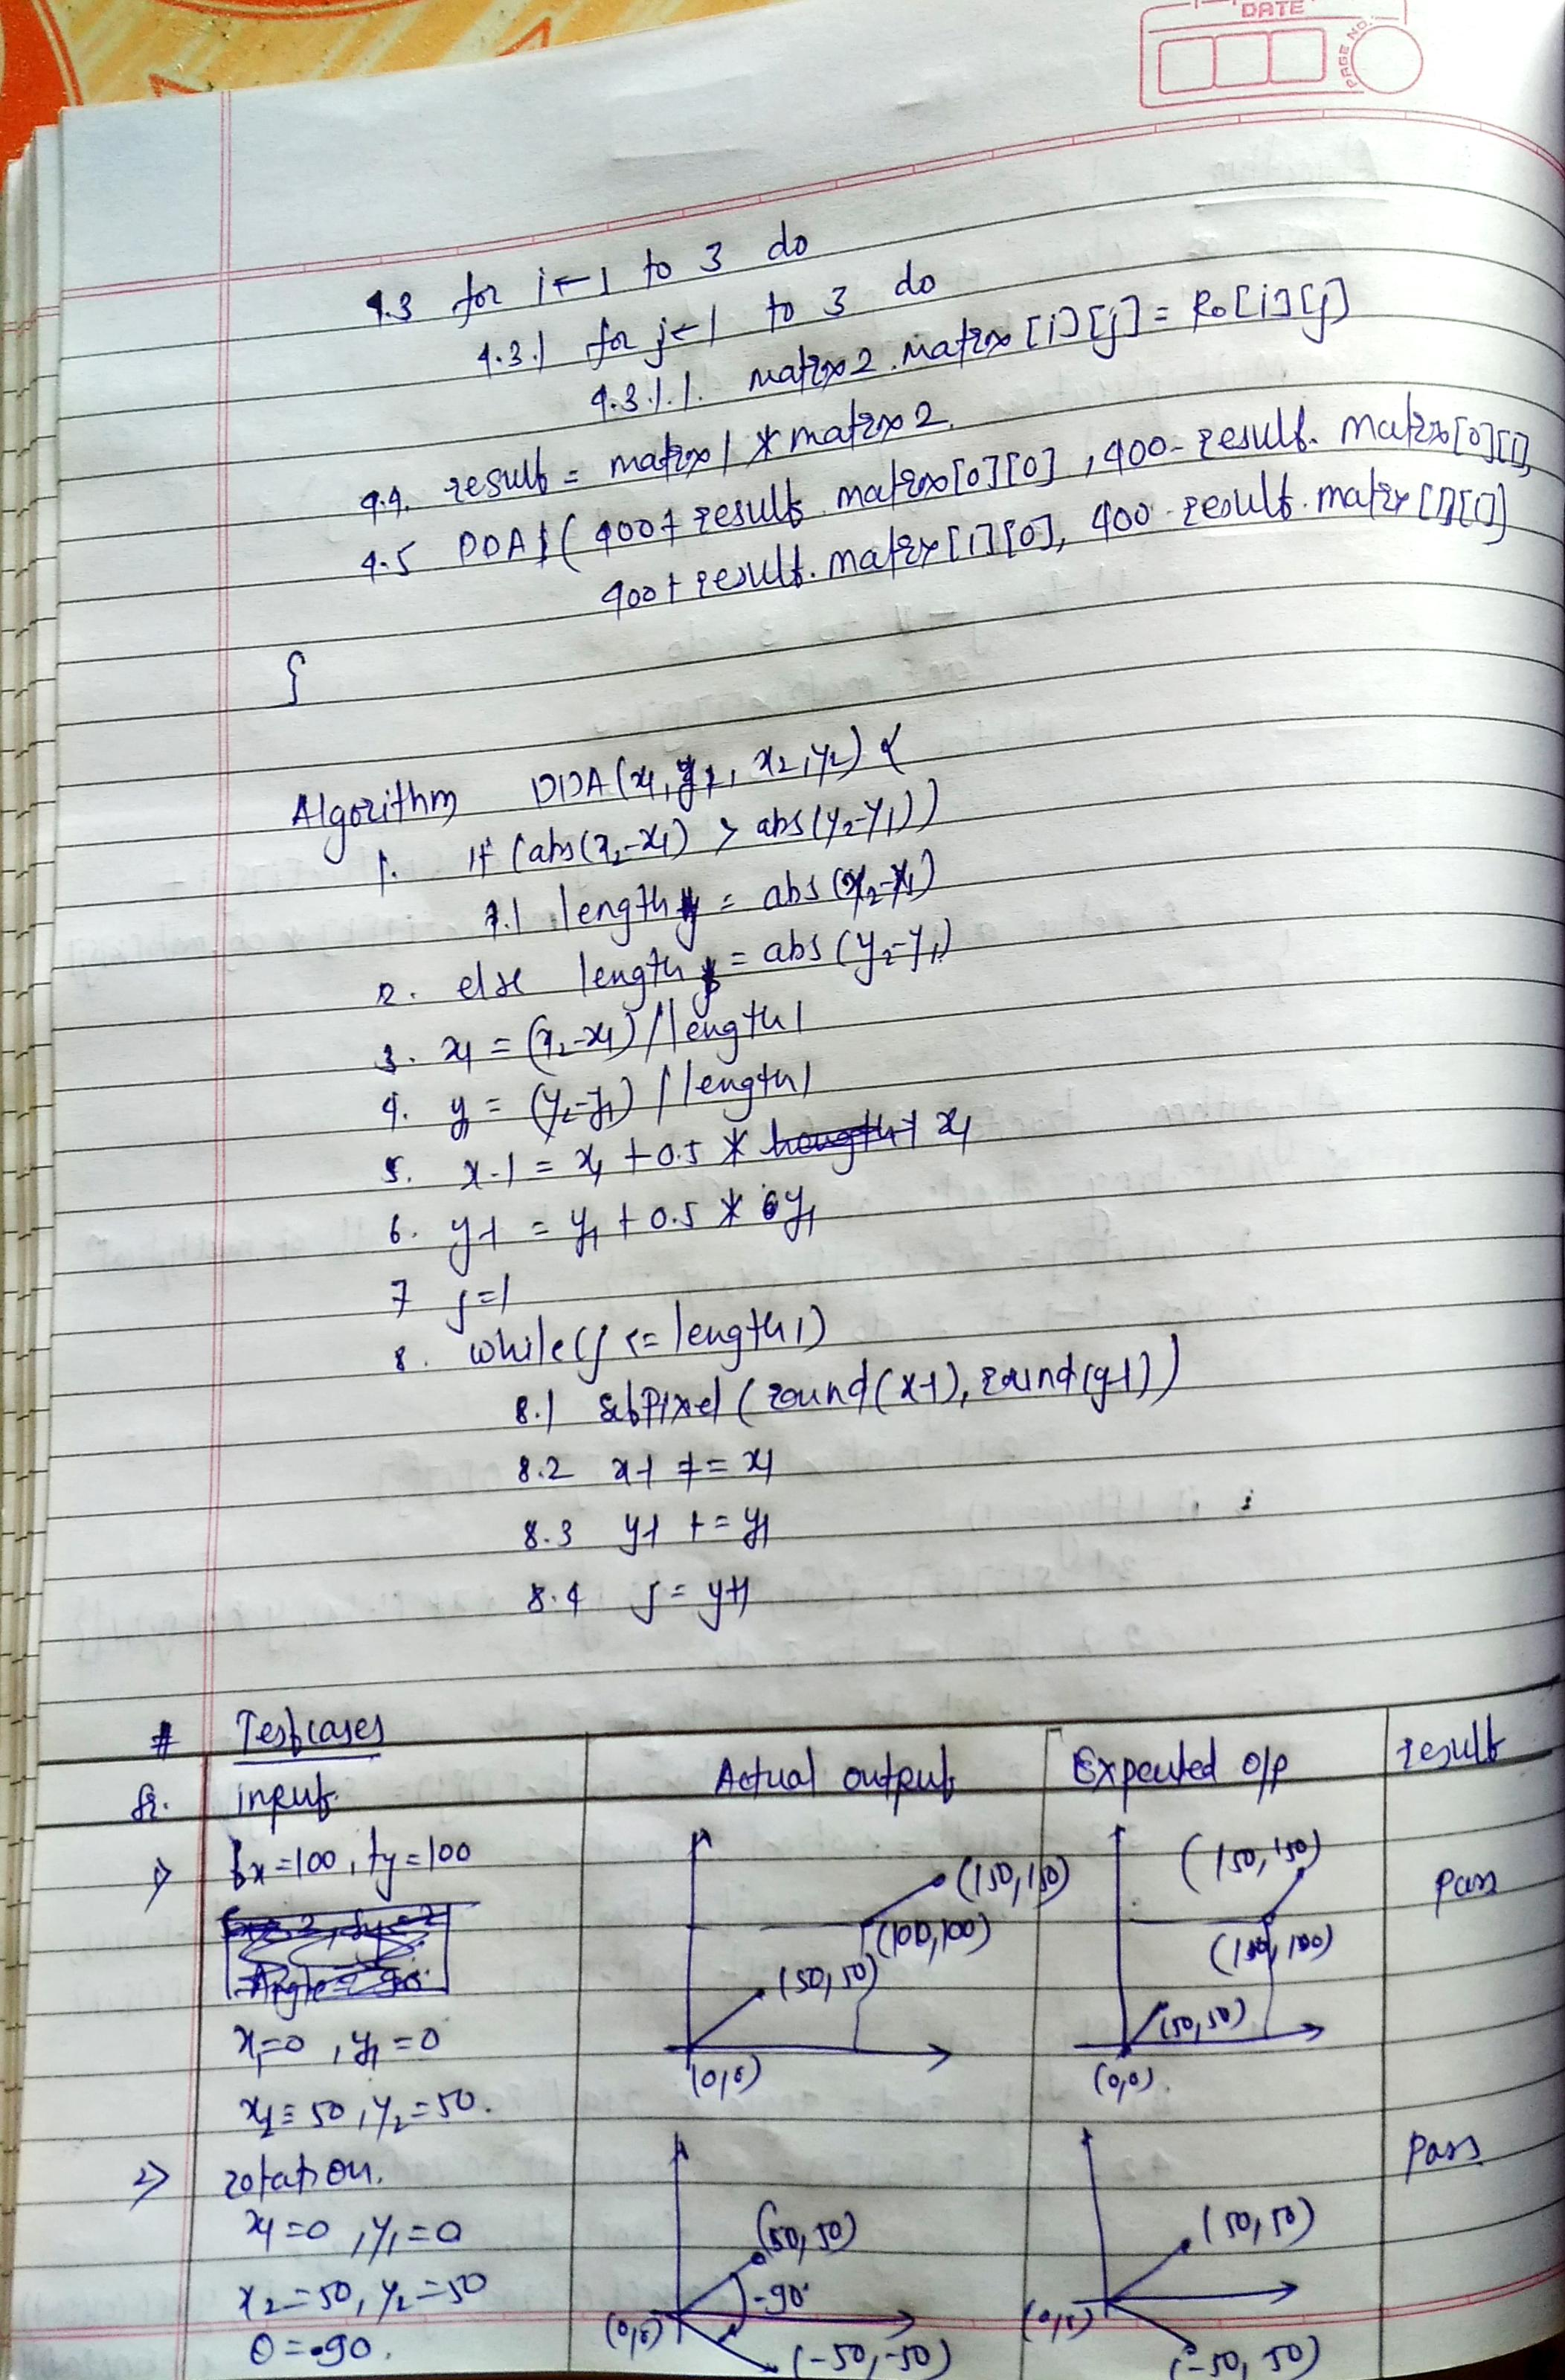 DATE
PAGE NO.
4.3 for i←1 to 3 do
4.3.1 for j←1 to 3 do
4.3.1.1. matrix2.matrix[i][j] = Ro[i][j]
4.4. result = matrix1 * matrix2.
4.5 DDA1(400+result.matrix[0][0], 400-result.matrix[0][1],
400+result.matrix[1][0], 400-result.matrix[1][1])
}
Algorithm DDA(x1, y1, x2, y2) {
1. if (abs(x2-x1) > abs(y2-y1))
1.1 length = abs(x2-x1)
2. else length = abs(y2-y1)
3. x1 = (x2-x1)/length1
4. y1 = (y2-y1)/length1
5. x-1 = x1 + 0.5 * x1
6. y-1 = y1 + 0.5 * y1
7 j=1
8. while(j <= length1)
8.1 setPixel(round(x-1), round(y-1))
8.2 x-1 += x1
8.3 y-1 += y1
8.4 j =
# Testcases
Sr. input Actual output Expected o/p result
1) tx=100, ty=100 (150,150) (150,150) pass
(100,100) (100,100)
(50,50) (50,50)
x1=0, y1=0
(0,0) (0,0)
x2=50, y2=50.
2) rotation. pass
x1=0, y1=0 (50,50) (50,50)
x2=50, y2=50 -90°
(0,0) (0,0)
θ=-90. (-50,-50) (-50,50)